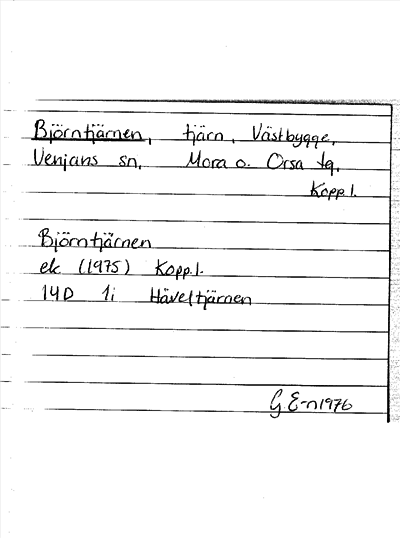 Björntjärnen, tjärn, Västbygge,
Venjans sn, Mora o. Orsa tg,
Kopp.l.
Björntjärnen
ek (1975) Kopp.l.
14D 1i Håveltjärnen
G E-n 1976